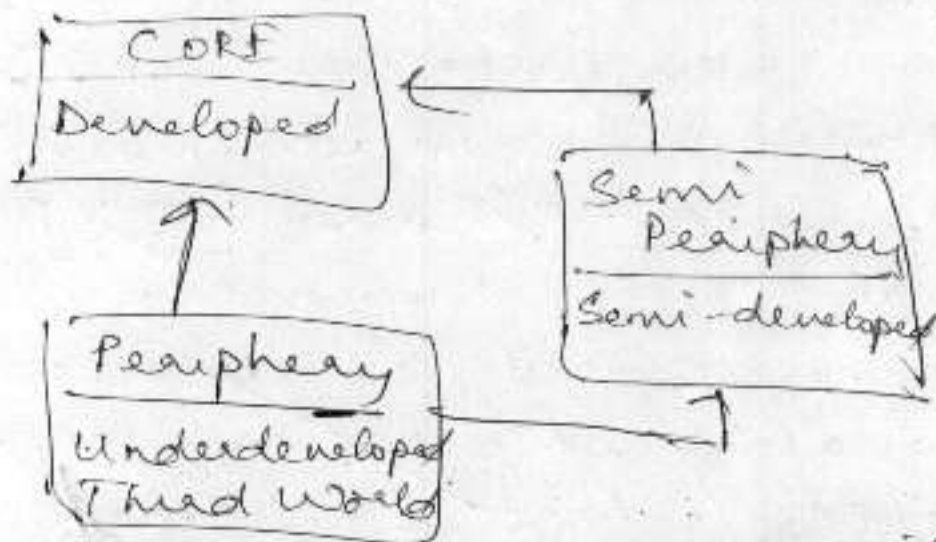 CORE
Developed
Semi
Periphery
Semi-developed
Periphery
Underdeveloped
Third World